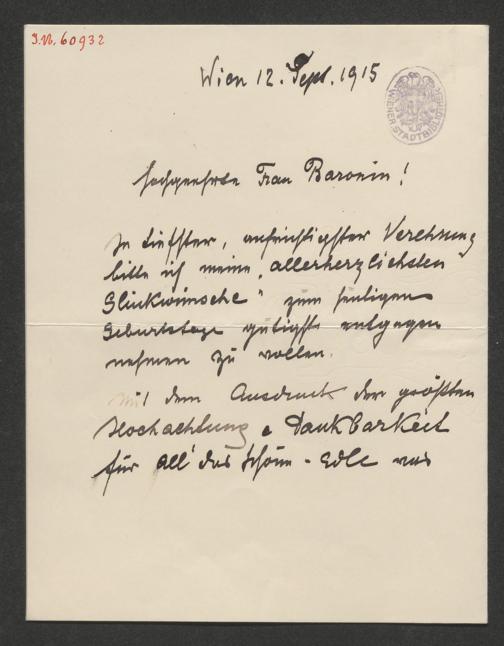 I.N. 60932
Wien 12. Sept. 1915
WIENER STADTBIBLIOTHEK
Hochgeehrte Frau Baronin!
In tiefster, aufrichtigster Verehrung
bitte ich meine „allerherzlichsten
Glückwünsche" zum heutigen
Geburtstage gütigst entgegen
nehmen zu wollen.
Mit dem Ausdruck der größten
Hochachtung & Dankbarkeit
für all' das Schöne - Edle was